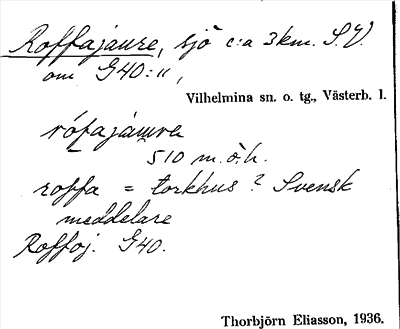 Roffajaure, sjö c:a 3 km. S.V.
om G40:11,
Vilhelmina sn. o. tg., Västerb. l.
rófajáurɐ
510 m.ö.h.
roffa = torkhus? Svensk
meddelare
Roffoj. G40.
Thorbjörn Eliasson, 1936.